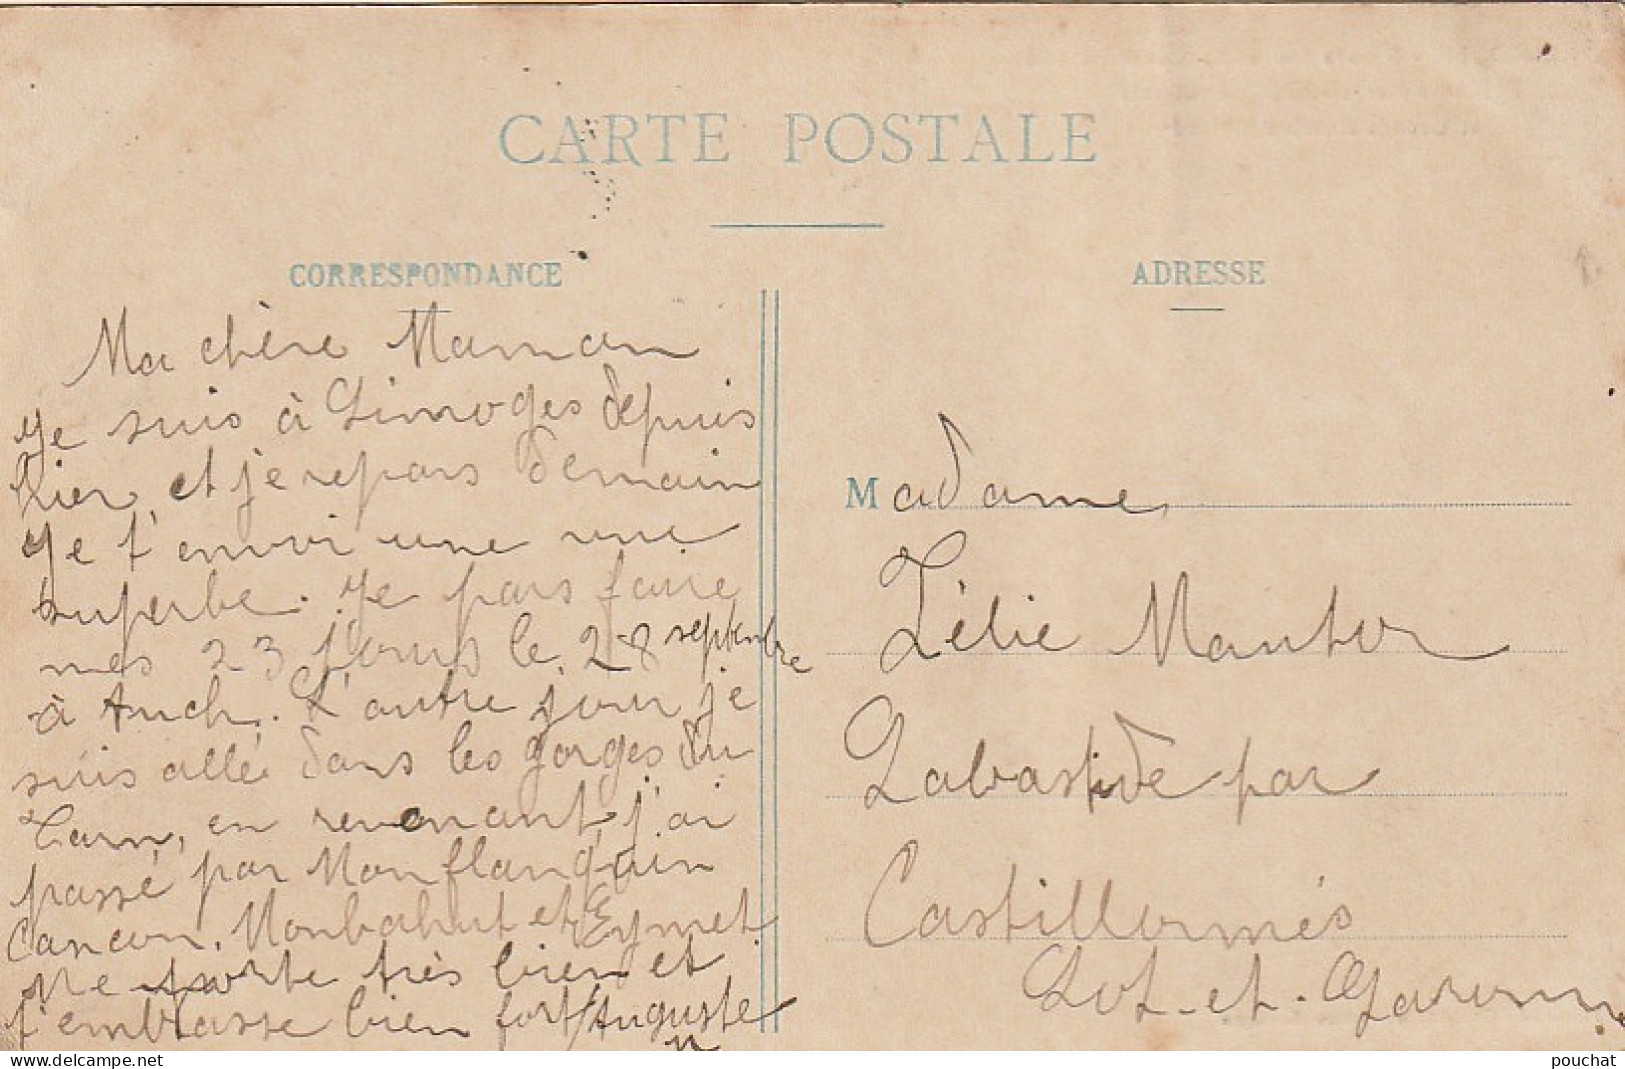 CARTE POSTALE
CORRESPONDANCE
Ma chère Maman
Je suis à Limoges depuis
hier, et je repars demain
Je t'envoi une vue
superbe. Je pars faire
mes 23 jours le 28 septembre
à Auch. L'autre jour je
suis allé dans les gorges du
Tarn, en revenant, j'ai
passé par Monflanquin
Cancon, Monbahut et Eymet.
Me porte très bien et
t'embrasse bien fort Auguste
ADRESSE
Madame
Zélie
Labastide par
Castillonnès
Lot-et-Garonne
pouchat
delcampe.net